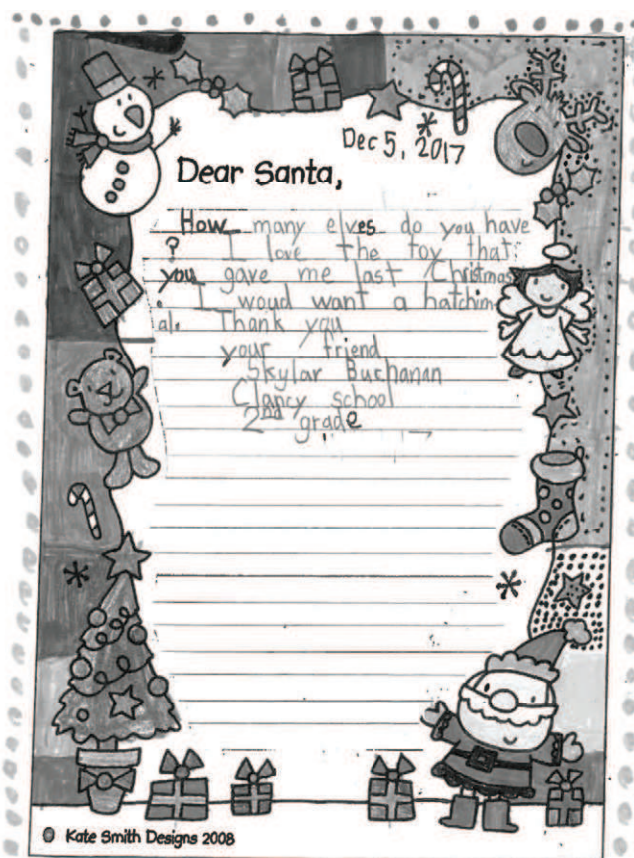 Dec 5, 2017
Dear Santa,
How many elves do you have
? I love the toy that
you gave me last Christmas
. I woud want a hatchim
al. Thank you
your friend
Skylar Buchanan
Clancy school
2nd grade
© Kate Smith Designs 2008